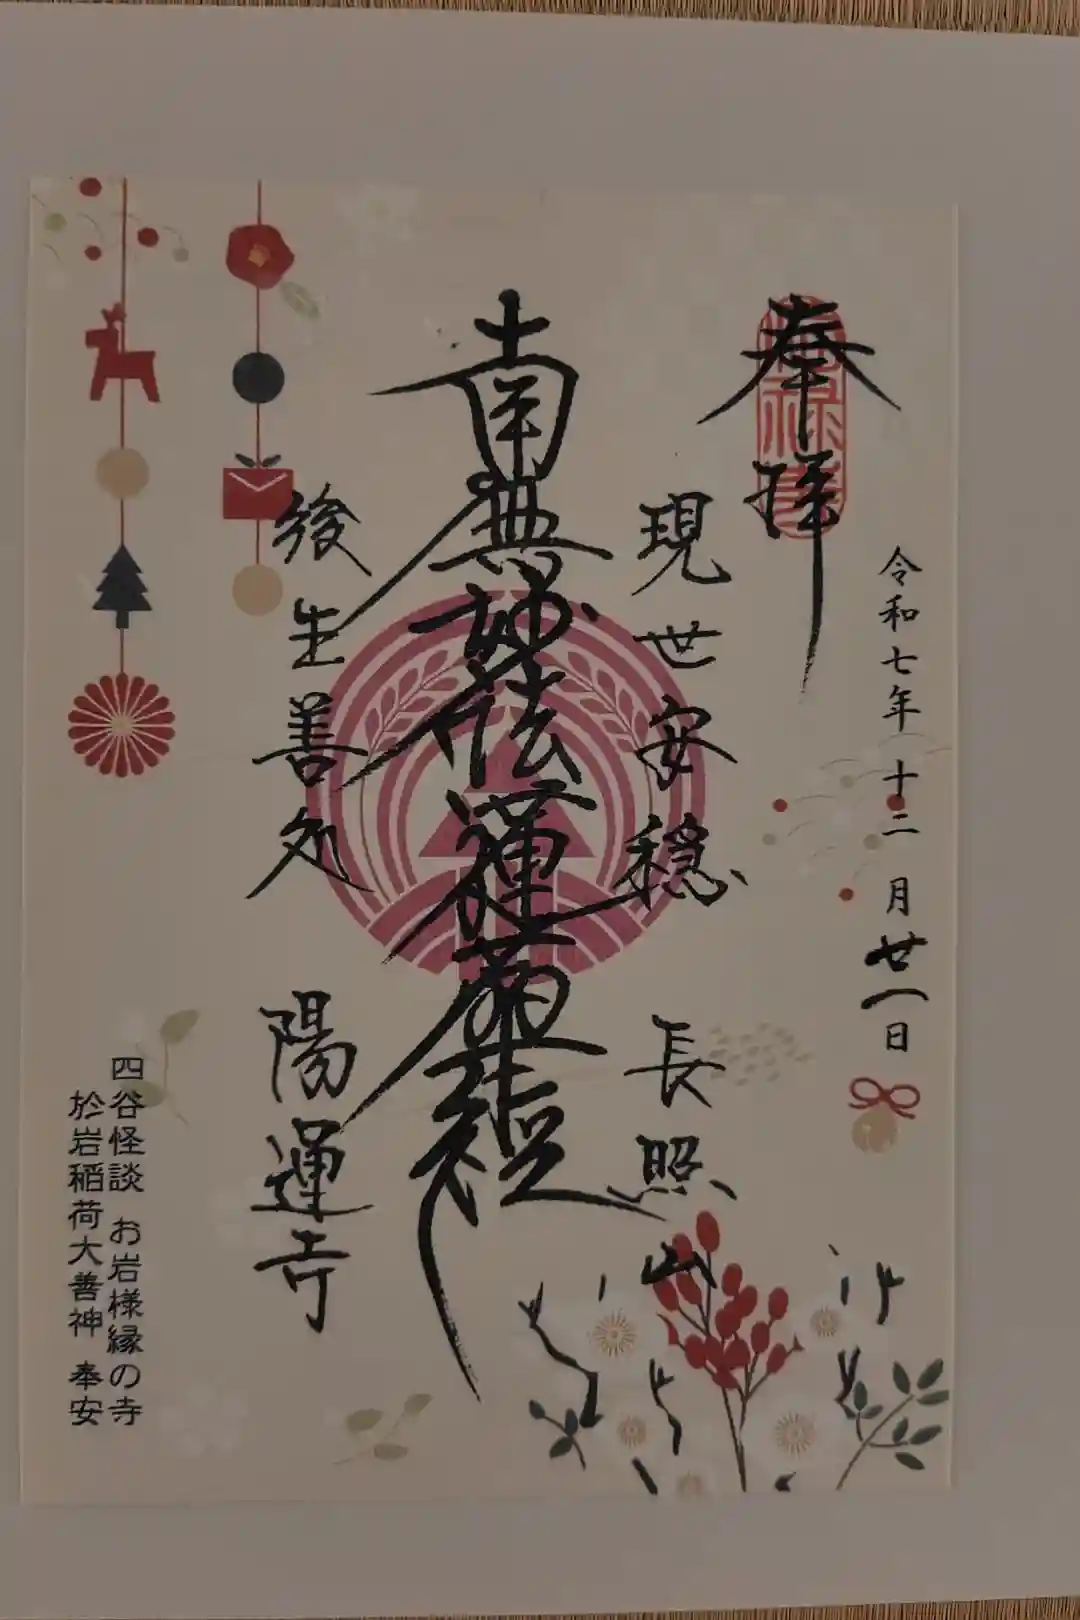 奉拝
令和七年十二月廿一日
現世安穏 長照山
南無妙法蓮華経
後生善処 陽運寺
四谷怪談 お岩様縁の寺
於岩稲荷大善神 奉安